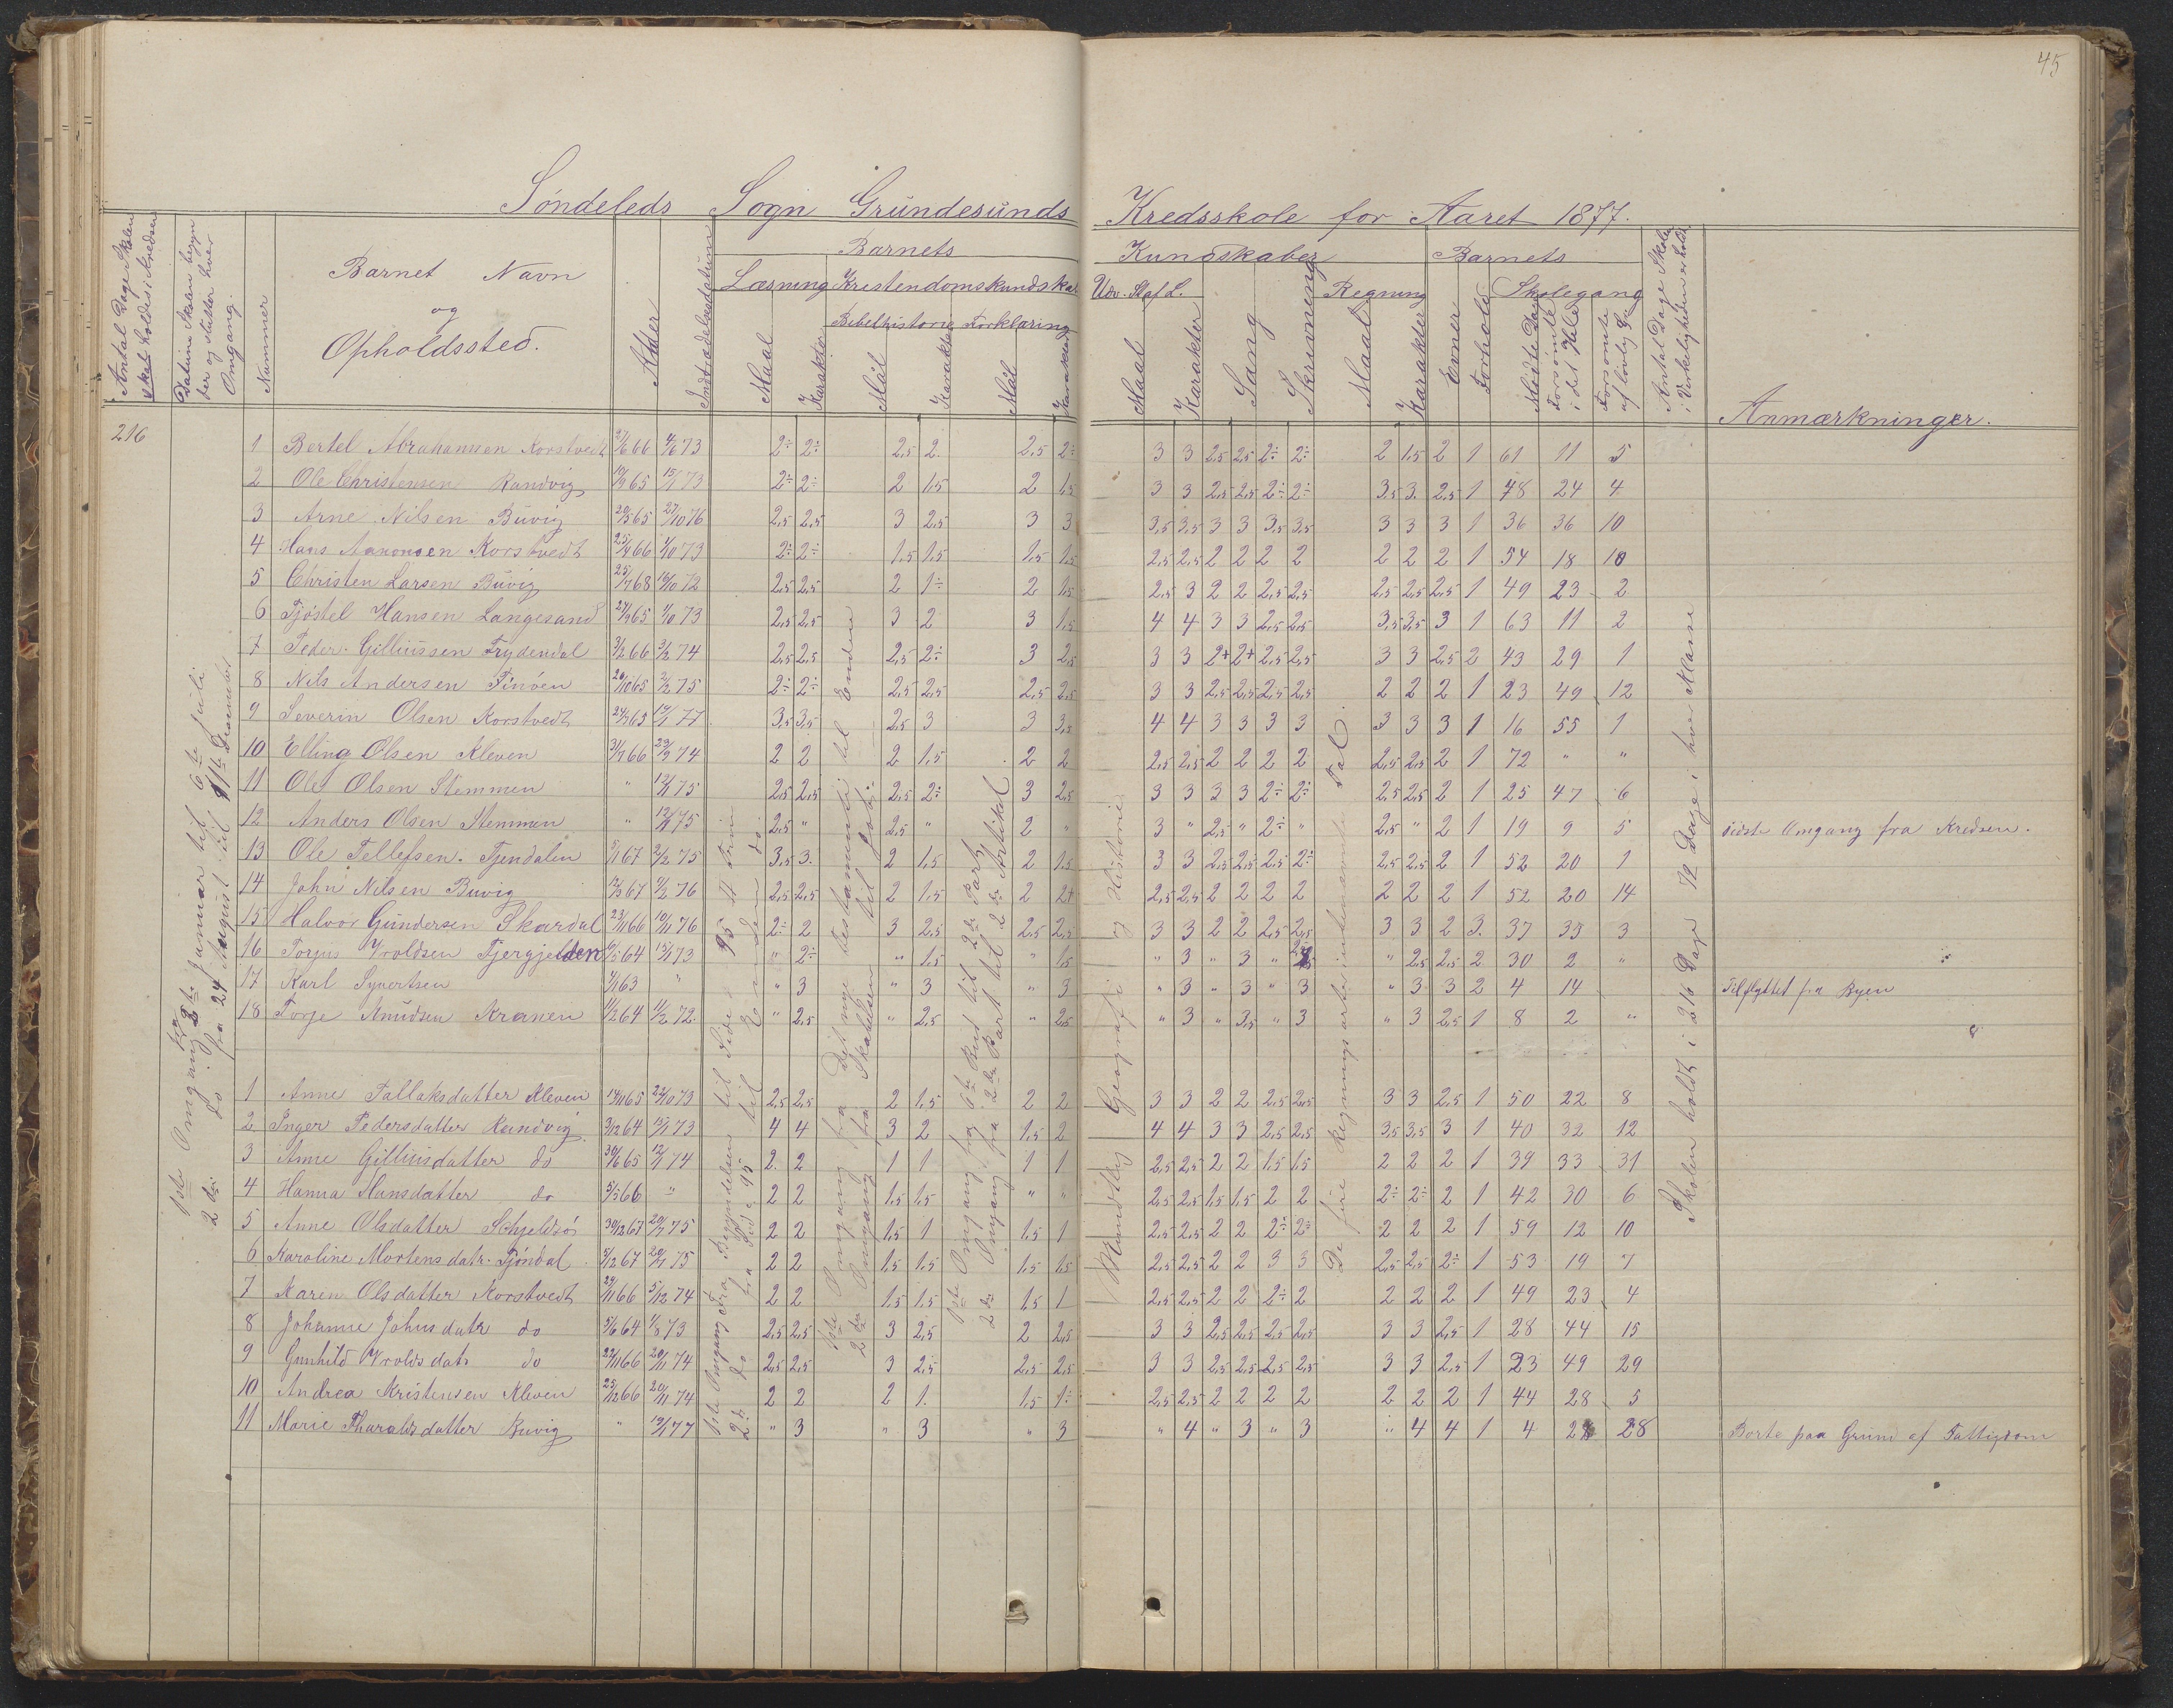 45
Søndeleds Sogn Grundesunds Kredsskole for Aaret 1877.
Antal Dage Skolen skal holdes i Kredsen
Datum Skolen begynder og slutter hver Omgang.
Nummer
Barnet Navn og Opholdssted.
Alder
Indtrædelsesdatum
Barnets Kundskaber
Læsning
Maal
Karakter
Kristendomskundskab
Bibelhistorie
Maal
Karakter
Forklaring
Maal
Karakter
Udv. Af L.
Maal
Karakter
Sang
Skrivning
Regning
Maal
Karakter
Barnets
Evner
Forhold
Skolegang
Mødte Dage
Forsømte i det Hele
Forsømte af lovlig Gr
Antal Dage Skolen i Virkeligheden er holdt
Anmærkninger.
216
1 Bertel Abrahamsen Korstvedt 2/6 66 4/6 73 2÷ 2÷ 2,5 2 2,5 2÷ 3 3 2,5 2,5 2÷ 2÷ 2 1,5 2 1 61 11 5
2 Ole Christensen Randvig 19/9 65 15/1 73 2÷ 2÷ 2 1,5 2 1,5 3 3 2,5 2,5 2÷ 2÷ 3,5 3 2,5 1 48 24 4
3 Arne Nilsen Buvig 20/5 65 27/10 76 2,5 2,5 3 2,5 3 3 3,5 3,5 3 3 3,5 3,5 3 3 3 1 36 36 10
4 Hans Aanonsen Korstvedt 25/4 66 1/10 73 2÷ 2÷ 1,5 1,5 1,5 1,5 2,5 2,5 2 2 2 2 2 2 2 1 54 18 10
5 Christen Larsen Buvig 25/7 68 16/10 72 2,5 2,5 2 1÷ 2 1,5 2,5 3 2 2 2,5 2,5 2,5 2,5 2,5 1 49 23 2
6 Tjøstel Hansen Langesand 27/9 65 1/10 73 2,5 2,5 3 2 3 1,5 4 4 3 3 2,5 2,5 3,5 3,5 3 1 63 11 2
7 Peder Gilliussen Frydendal 3/2 66 3/2 74 2,5 2,5 2,5 2÷ 3 2,5 3 3 2+ 2+ 2,5 2,5 3 3 2,5 2 43 29 1
8 Nils Andersen Finøen 20/10 65 2/2 75 2÷ 2÷ 2,5 2,5 2,5 2,5 3 3 2,5 2,5 2,5 2,5 2 2 2 1 23 49 12
9 Severin Olsen Korstvedt 24/3 63 12/1 77 3,5 3,5 2,5 3 3 3,5 4 4 3 3 3 3 3 3 3 1 16 55 1
10 Elling Olsen Kleven 31/7 66 29/9 74 2 2 2 1,5 2 2 2,5 2,5 2 2 2 2 2,5 2,5 2 1 72 " "
11 Ole Olsen Stemmen " 12/1 75 2,5 2,5 2,5 2÷ 3 2,5 3 3 3 3 2÷ 2÷ 2,5 2,5 2 1 25 47 6
12 Anders Olsen Stemmen " 12/1 75 2,5 " 2,5 " 2 " 3 " 2,5 " 2÷ " 2,5 " 2 1 19 9 5 sidste Omgang fra Kredsen.
13 Ole Tellefsen Tjendalen 5/1 67 2/2 75 3,5 3 2 1,5 2 1,5 3 3 2,5 2,5 2,5 2÷ 2,5 2,5 2 1 52 20 1
14 John Nilsen Buvig 12/3 67 4/2 76 2,5 2,5 2 1,5 2 2+ 2,5 2,5 2 2 2 2 2 2 2 1 52 20 14
15 Halvor Gundersen Skardal 23/11 66 10/11 76 2÷ 2 3 2,5 2,5 2,5 3 3 2 2 2,5 2,5 3 3 2 3 37 35 3
16 Torjus Vroldsen Fjergjelden 6/5 64 15/1 73 " 2÷ " 1,5 " 1,5 " 3 " 3 " 2,5 " 2,5 2,5 2 30 2 "
17 Karl Syvertsen 4/1 63 " " 3 " 3 " 3 " 3 " 3 " 3 " 3 3 2 4 14 Tilflyttet fra Byen
18 Torje Knudsen Kranen 11/2 64 11/2 72 " 2,5 " 2,5 " 2,5 " 3 " 3,5 " 3 " 3 2,5 1 8 2 "
1 Anne Tallaksdatter Kleven 14/11 65 22/10 73 2,5 2,5 2 1,5 2 2 3 3 2 2 2,5 2,5 3 3 2,5 1 50 22 8
2 Inger Pedersdatter Randvig 3/12 64 15/1 73 4 4 3 2 1,5 2 4 4 3 3 2,5 2,5 3,5 3,5 3 1 40 32 12
3 Anne Gilliusdatter do 30/6 65 12/1 74 2 2 1 1 1 1 2,5 2,5 2 2 1,5 1,5 2 2 2 1 39 33 31
4 Hanna Hansdatter do 5/5 66 " 2 2 1,5 1,5 " " 2,5 2,5 1,5 1,5 2 2 2÷ 2÷ 2 1 42 30 6
5 Anne Olsdatter Schjeldsø 30/12 67 20/7 75 2 2 1,5 1 1,5 1 2,5 2,5 2 2 2÷ 2÷ 2 2 2 1 59 12 10
6 Karoline Mortensdatr. Tjøndal 5/12 67 20/7 75 2 2 1,5 1,5 1,5 1,5 2,5 2,5 2 2 3 3 2,5 2,5 2÷ 1 53 19 7
7 Karen Olsdatter Korstvedt 29/11 66 5/12 74 2 2 1,5 1,5 1,5 1 2,5 2,5 2 2 2÷ 2 2 2 2 1 49 23 4
8 Johanne Johnsdatr do 5/6 64 1/8 73 2,5 2,5 3 2,5 2 2,5 3 3 2,5 2,5 2,5 2,5 3 3 2,5 1 28 44 15
9 Gunhild Vroldsdatr do 22/11 66 20/11 74 2,5 2,5 3 2,5 2,5 2,5 3 3 2,5 2,5 2,5 2,5 3 3 2,5 1 23 49 29
10 Andrea Kristensen Kleven 25/12 66 20/11 74 2 2 2 1 1,5 1÷ 2,5 2,5 2 2 2 2 2 2 2 1 44 28 5
11 Marie Tharaldsdatter Buvig " 12/1 77 " 3 " 3 " 3 " 4 " 3 " 3 " 4 4 1 4 28 Borte paa Grund af Fattigdom
1ste Omgang fra Januar til 6te Juli
2den do fra 24 August til 11te December
1ste Omgang fra Begyndelsen til Side 95
2den do fra Side 95 til Enden
1ste Omgang fra Det nye testamente til Enden
2den Omgang fra Skabelsen til
1ste Omgang fra 6te Bud til 2den Part
2den Omgang fra 2den Part til 2den Artikel
Mundtlig Geografi og Historie
De fire Regningsarter i ubenævnte Tal.
Skolen holdt i 216 Dage 72 Dage i hver Klasse